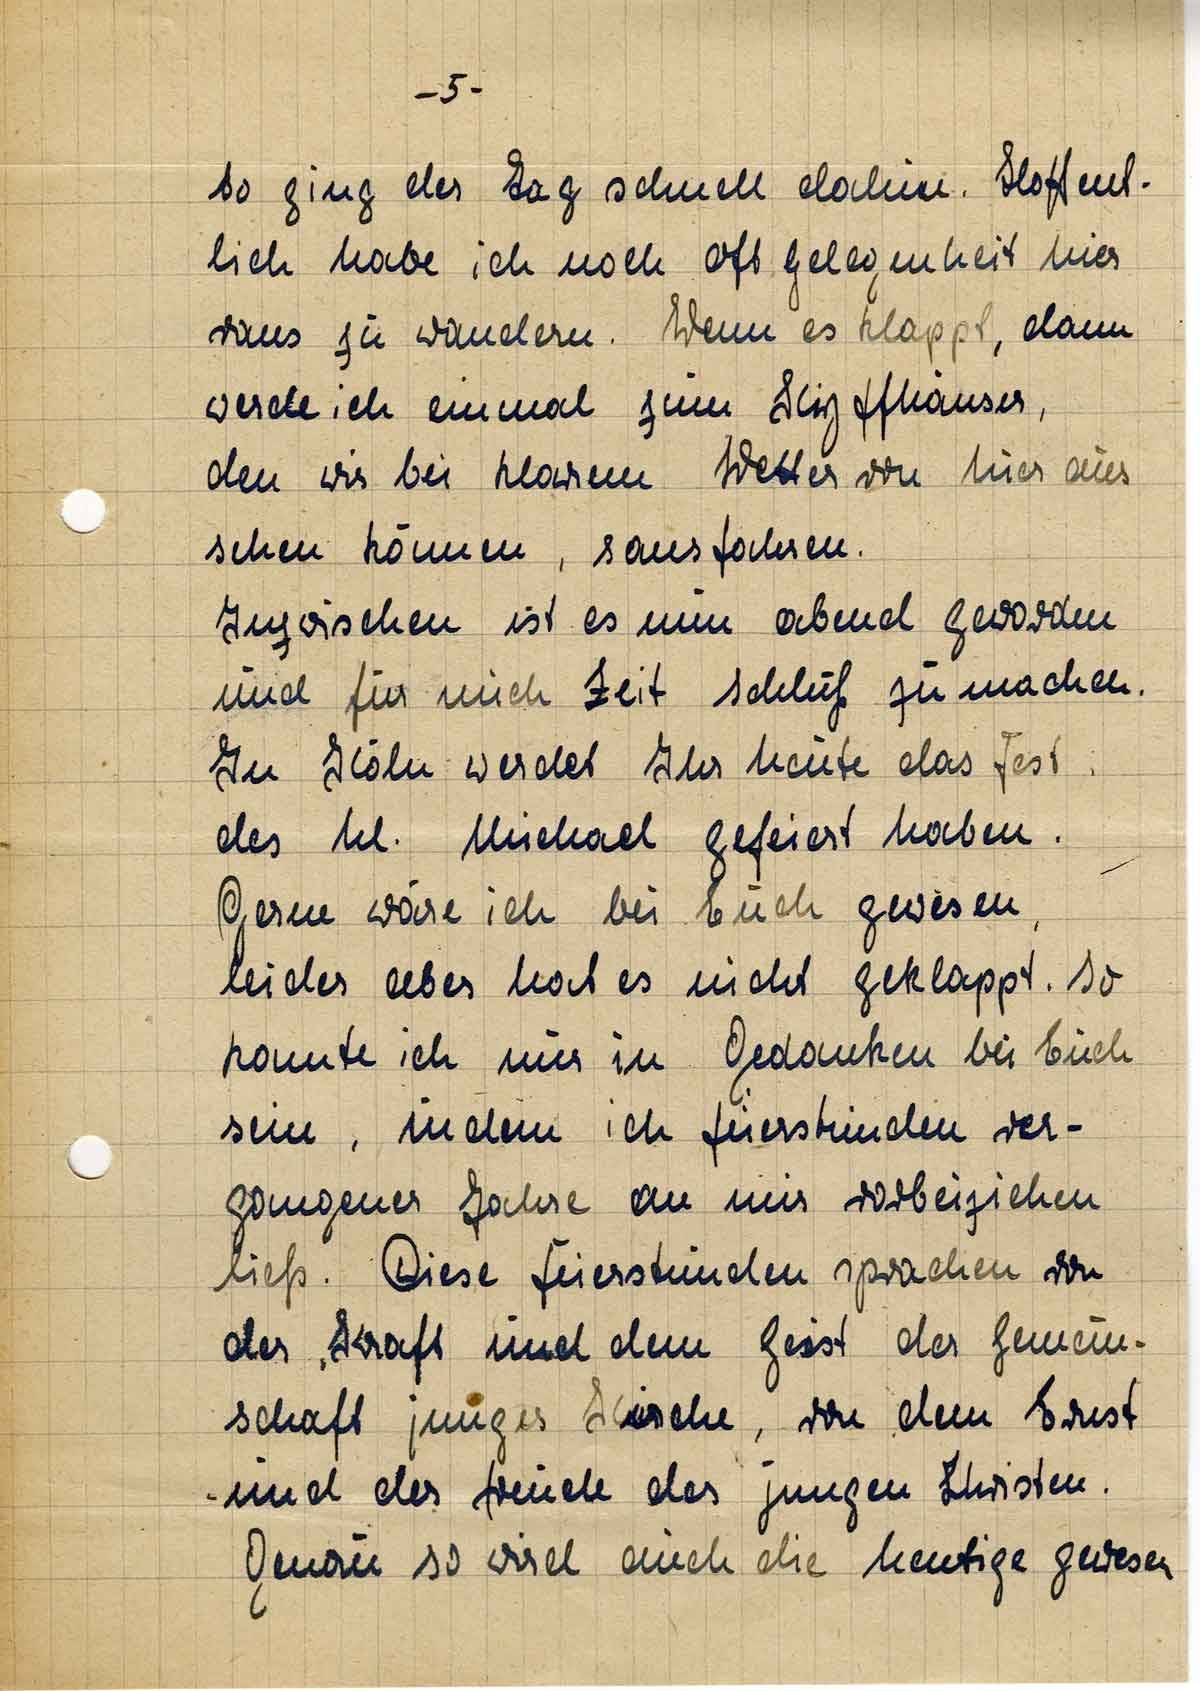 -5-
so ging der Tag schnell dahin. Hoffent-
lich habe ich noch oft gelegenheit hier
raus zu wandern. Wenn es klappt, dann
werde ich einmal zum Kyffhäuser,
den wir bei klarem Wetter von hier aus
sehen können, rausfahren.
Inzwischen ist es nun abend geworden
und für mich Zeit schluß zu machen.
In Köln werdet Ihr heute das Fest
des hl. Michael gefeiert haben.
Gerne wäre ich bei Euch gewesen,
leider aber hat es nicht geklappt. So
konnte ich nur in Gedanken bei Euch
sein, indem ich feierstunden ver-
gangener Jahre an mir vorbeiziehen
ließ. Diese feierstunden sprachen von
der Kraft und dem Geist der Gemein-
schaft junger Kirche, von dem Ernst
und der freude des jungen Christen.
Genau so wird auch die heutige gewesen